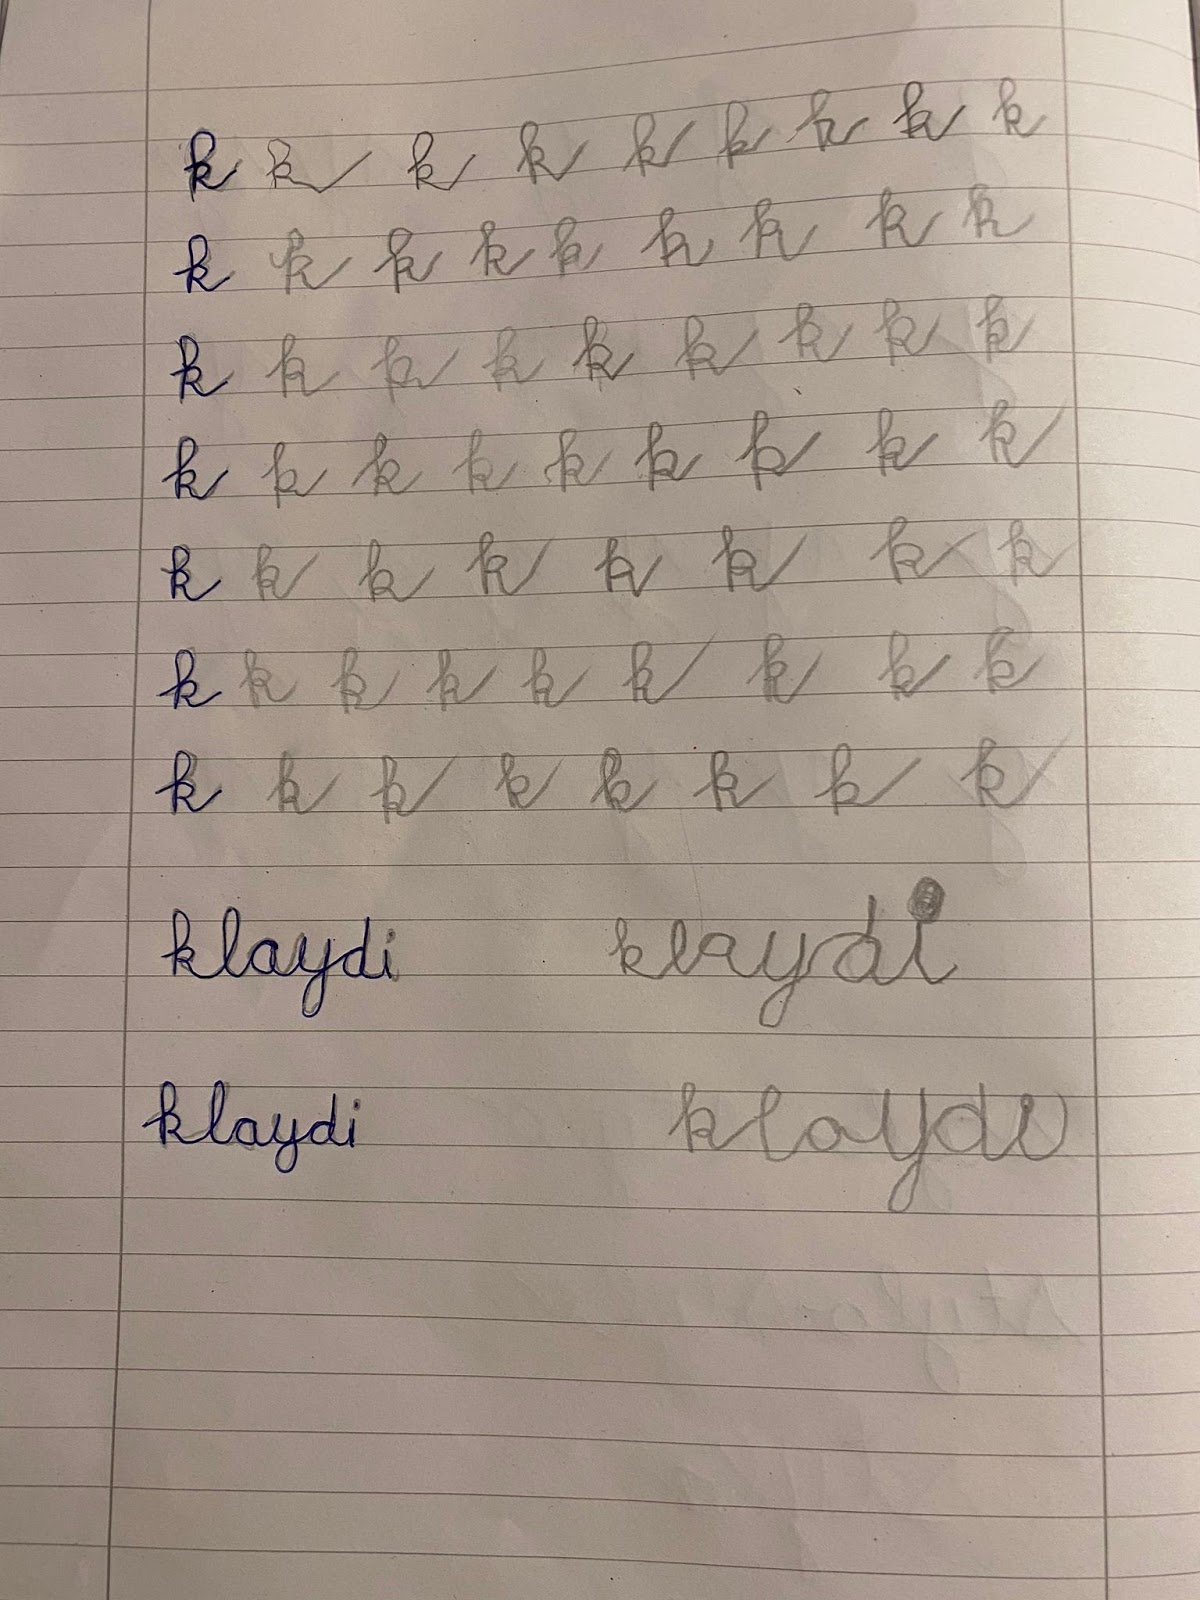 k k k k k k k k k
k k k k k k k k k
k k k k k k k k k
k k k k k k k k k
k k k k k k k k
k k k k k k k k k
k k k k k k k k
klaydi klaydi
klaydi klaydi